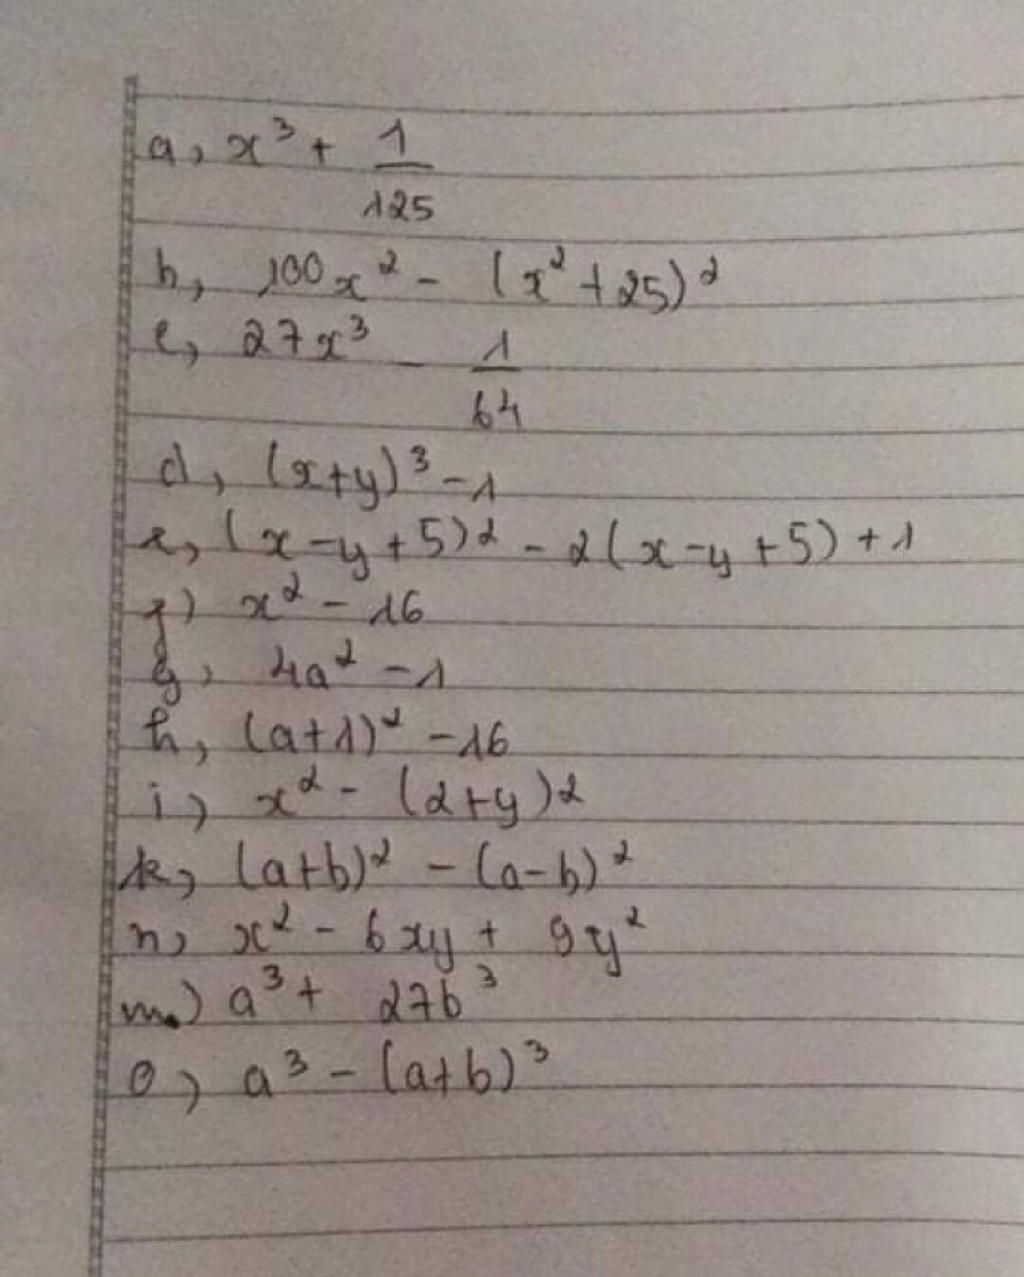 a, x³ + 1/125
b, 100x² - (x² + 25)²
c, 27x³ - 1/64
d, (x+y)³ - 1
e, (x - y + 5)² - 2(x - y + 5) + 1
f) x² - 16
g, 4a² - 1
h, (a+1)² - 16
i, x² - (2+y)²
k, (a+b)² - (a-b)²
n, x² - 6xy + 9y²
m) a³ + 27b³
o, a³ - (a+b)³